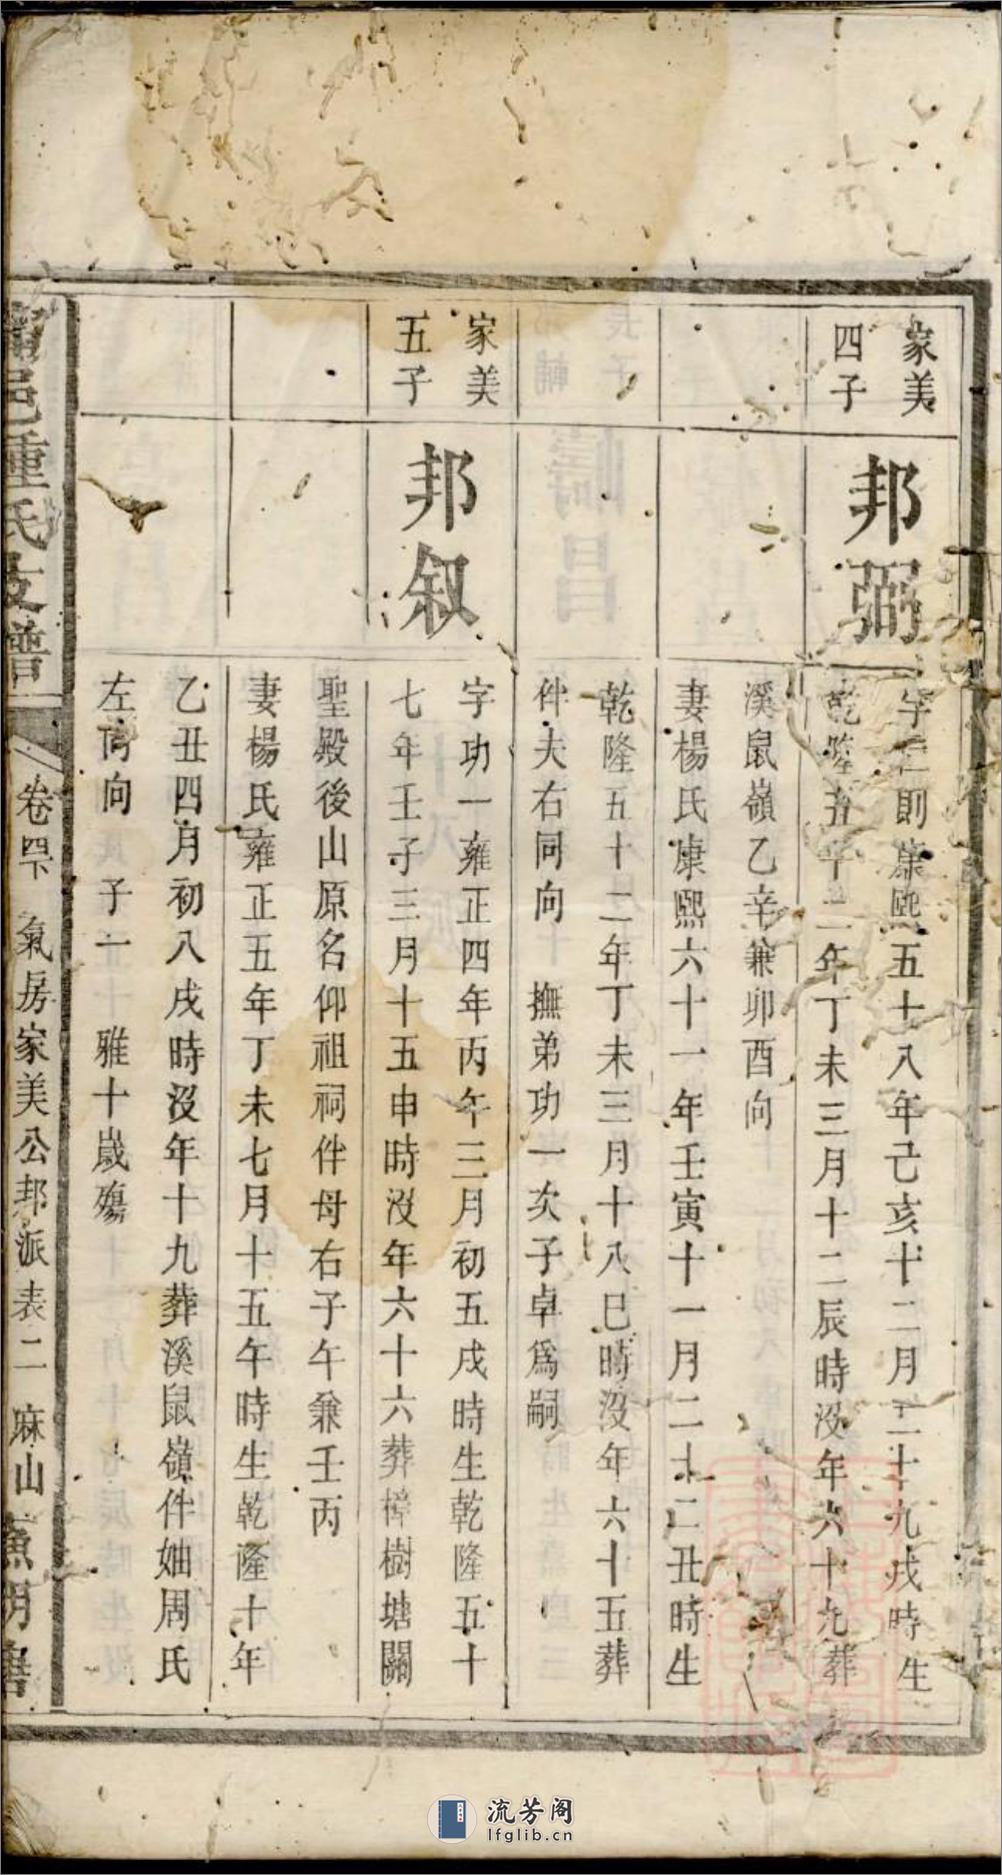 家美
四子
邦弼
字 則康熙五十八年己亥十二月二十九戌時生
乾隆五十二年丁未三月十二辰時没年六十九葬
溪鼠嶺乙辛兼卯酉向
妻楊氏康熙六十一年壬寅十一月二十二丑時生
乾隆五十二年丁未三月十八巳時沒年六十五葬
伴夫右同向 撫弟功一次子卓爲嗣
家美
五子
邦叙
字功一雍正四年丙午三月初五戌時生乾隆五十
七年壬子三月十五申時没年六十六葬樟樹塘關
聖殿後山原名仰祖祠伴母右子午兼壬丙
妻楊氏雍正五年丁未七月十五午時生乾隆十年
乙丑四月初八戌時沒年十九葬溪鼠嶺伴妯周氏
左同向 子一 雅十歲殤
邑鍾氏支譜
卷四下 氣房家美公邦派表二 麻山
流芳阁
lfglib.cn